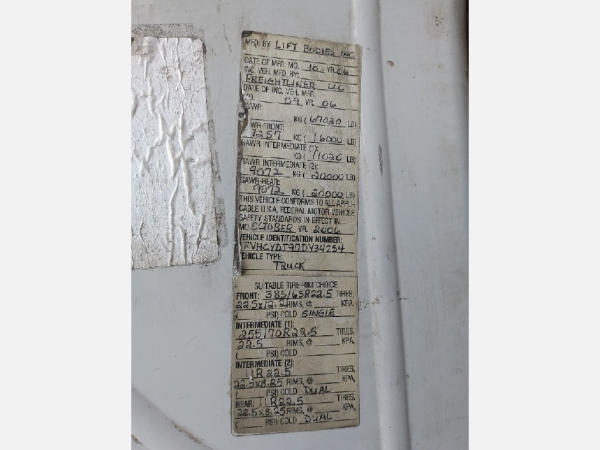 MFD. BY LIFT BODIES INC
DATE OF MFR. MO. 10 YR. 06
INC. VEH. MFD. BY:
FREIGHTLINER LLC
DATE OF INC. VEH. MFR.
MO. 09 YR. 06
GVWR:
KG ( 67020 LB)
GAWR-FRONT:
7257 KG ( 16000 LB)
GAWR INTERMEDIATE (1):
KG ( 11020 LB)
GAWR INTERMEDIATE (2):
9072 KG ( 20000 LB)
GAWR-REAR:
9072 KG ( 20000 LB)
THIS VEHICLE CONFORMS TO ALL APPLI-
CABLE U.S.A. FEDERAL MOTOR VEHICLE
SAFETY STANDARDS IN EFFECT IN
MO. OCTOBER YR. 2006
VEHICLE IDENTIFICATION NUMBER:
VEHICLE TYPE:
TRUCK
SUITABLE TIRE-RIM CHOICE
FRONT: 385/65R22.5 TIRES,
22.5x12.2 RIMS, @ KPA
( PSI) COLD SINGLE
INTERMEDIATE (1):
255/70R22.5 TIRES,
22.5 RIMS, @ KPA,
( PSI) COLD
INTERMEDIATE (2):
11R22.5 TIRES,
22.5x8.25 RIMS, @ KPA,
( PSI) COLD DUAL
REAR: 11R22.5 TIRES,
22.5x8.25 RIMS, @ KPA,
( PSI) COLD DUAL